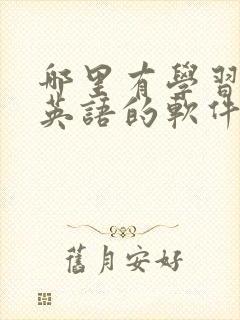 哪里有學習
英語的軟件
舊月安好